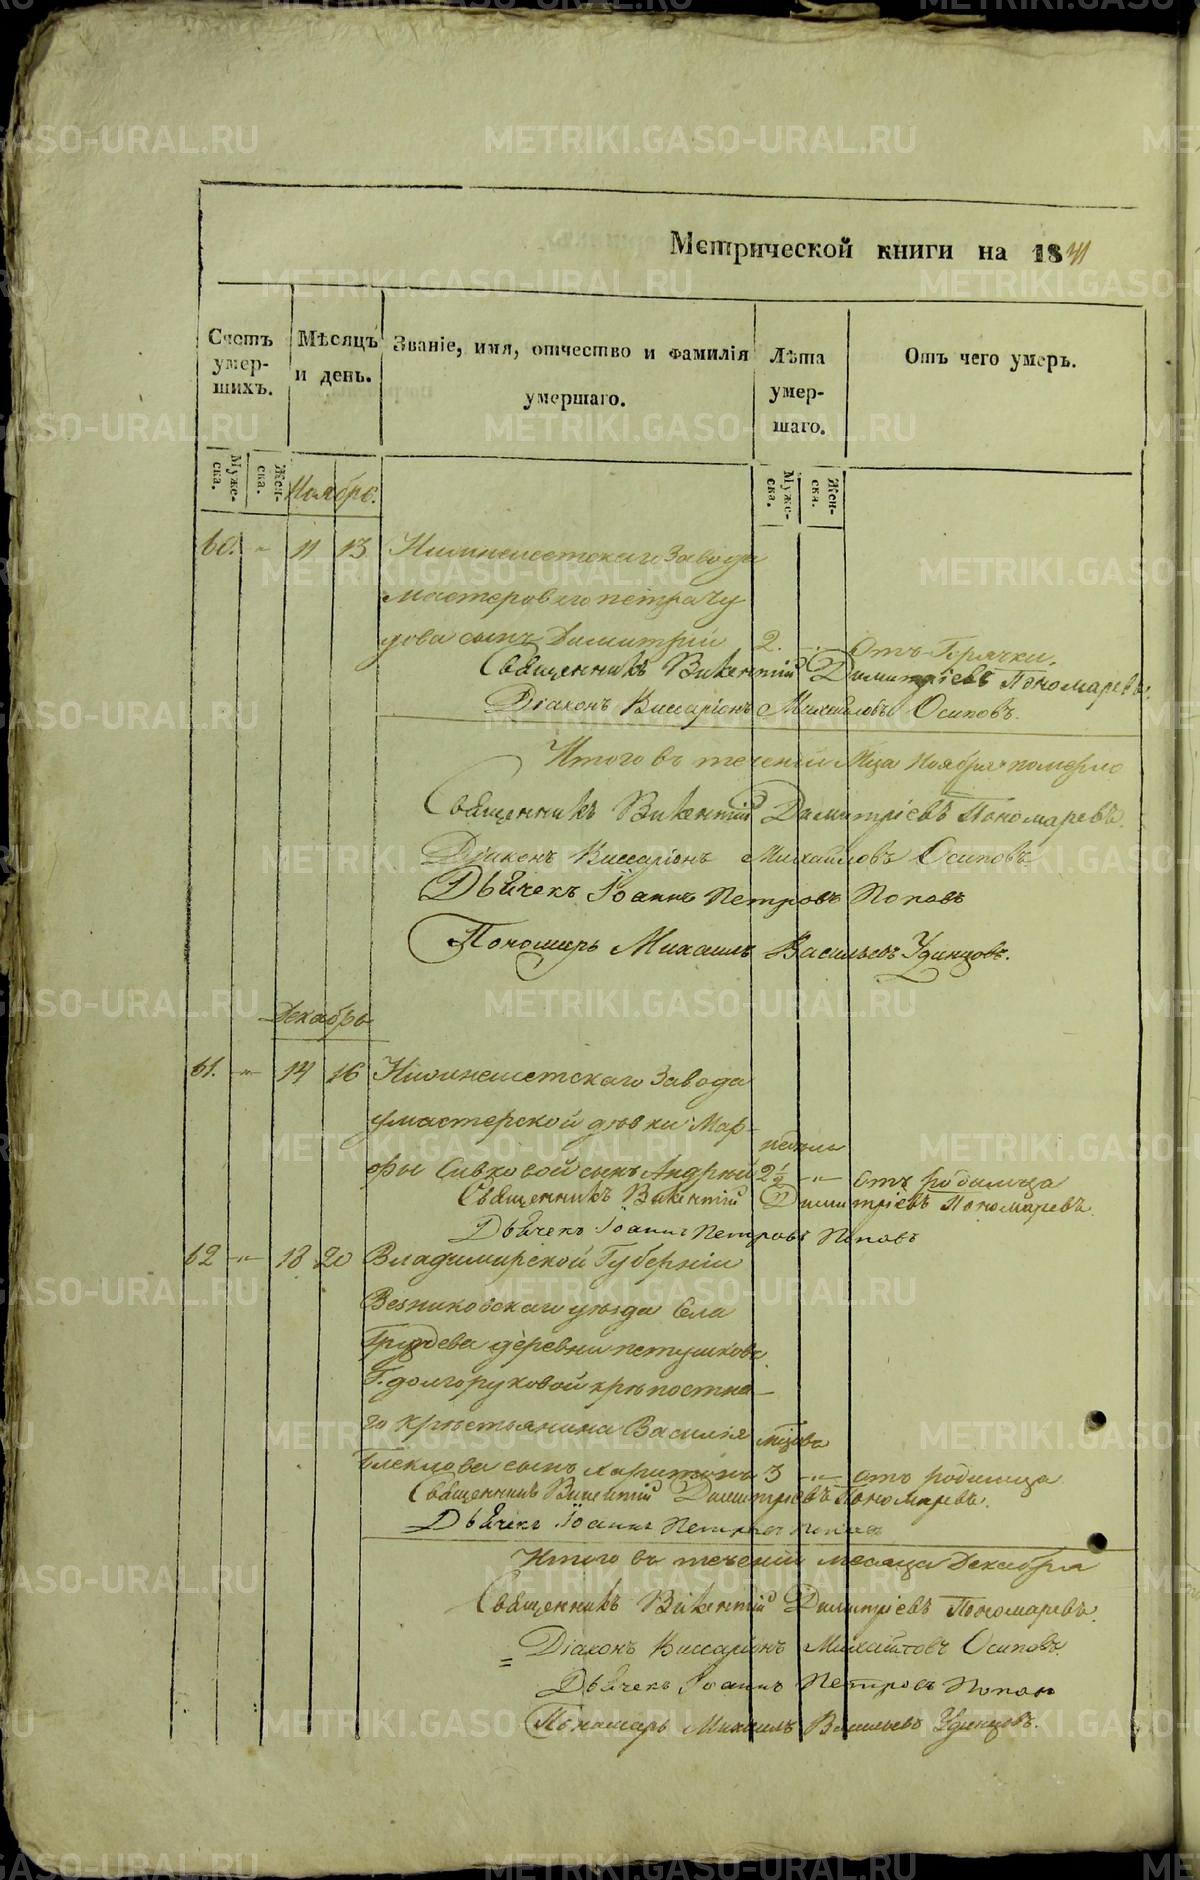 Метрической книги на 1841
Счетъ умер-шихъ.
Мѣсяцъ и день.
Званіе, имя, отчество и фамилія умершаго.
Лѣта умер-шаго.
Отъ чего умеръ.
Муже-ска.
Жен-ска.
Муже-ска.
Жен-ска.
Ноябрь.
60. " 11 13 Нижнеисетскаго Завода
мастероваго Петра Чу
дова сынъ Димитрій 2. " Отъ Горячки.
Священникъ Викентій Димитріевъ Пономаревъ.
Діаконъ Виссаріонъ Михайловъ Осиповъ.
Итого въ теченіи Мца Ноября померло
Священникъ Викентій Димитріевъ Пономаревъ.
Діаконъ Виссаріонъ Михайловъ Осиповъ
Дьячекъ Іоаннъ Петровъ Поповъ
Пономарь Михаилъ Васильевъ Удинцовъ.
Декабрь
61. " 14 16 Нижнеисетскаго Завода
у мастерской дѣвки Мар-
недѣли
фы Сивковой сынъ Андрей 2½ " отъ родимца
Священникъ Викентій Димитріевъ Пономаревъ.
Дьячекъ Іоаннъ Петровъ Поповъ
62 " 18 20 Владимирской Губерніи
Везниковскаго уѣзда Села
деревни Петушковъ
Г. Долгоруковой крѣпостна-
го крестьянина Василія мѣсяца
сынъ Харитонъ 3 " отъ родимца
Священникъ Викентій Димитріевъ Пономаревъ.
Дьячекъ Іоаннъ Петровъ Поповъ
Итого въ теченіи месяца Декабря
Священникъ Викентій Димитріевъ Пономаревъ.
= Діаконъ Виссаріонъ Михайловъ Осиповъ.
Дьячекъ Іоаннъ Петровъ Попов
Пономарь Михаилъ Васильевъ Удинцовъ.
METRIKI.GASO-URAL.RU